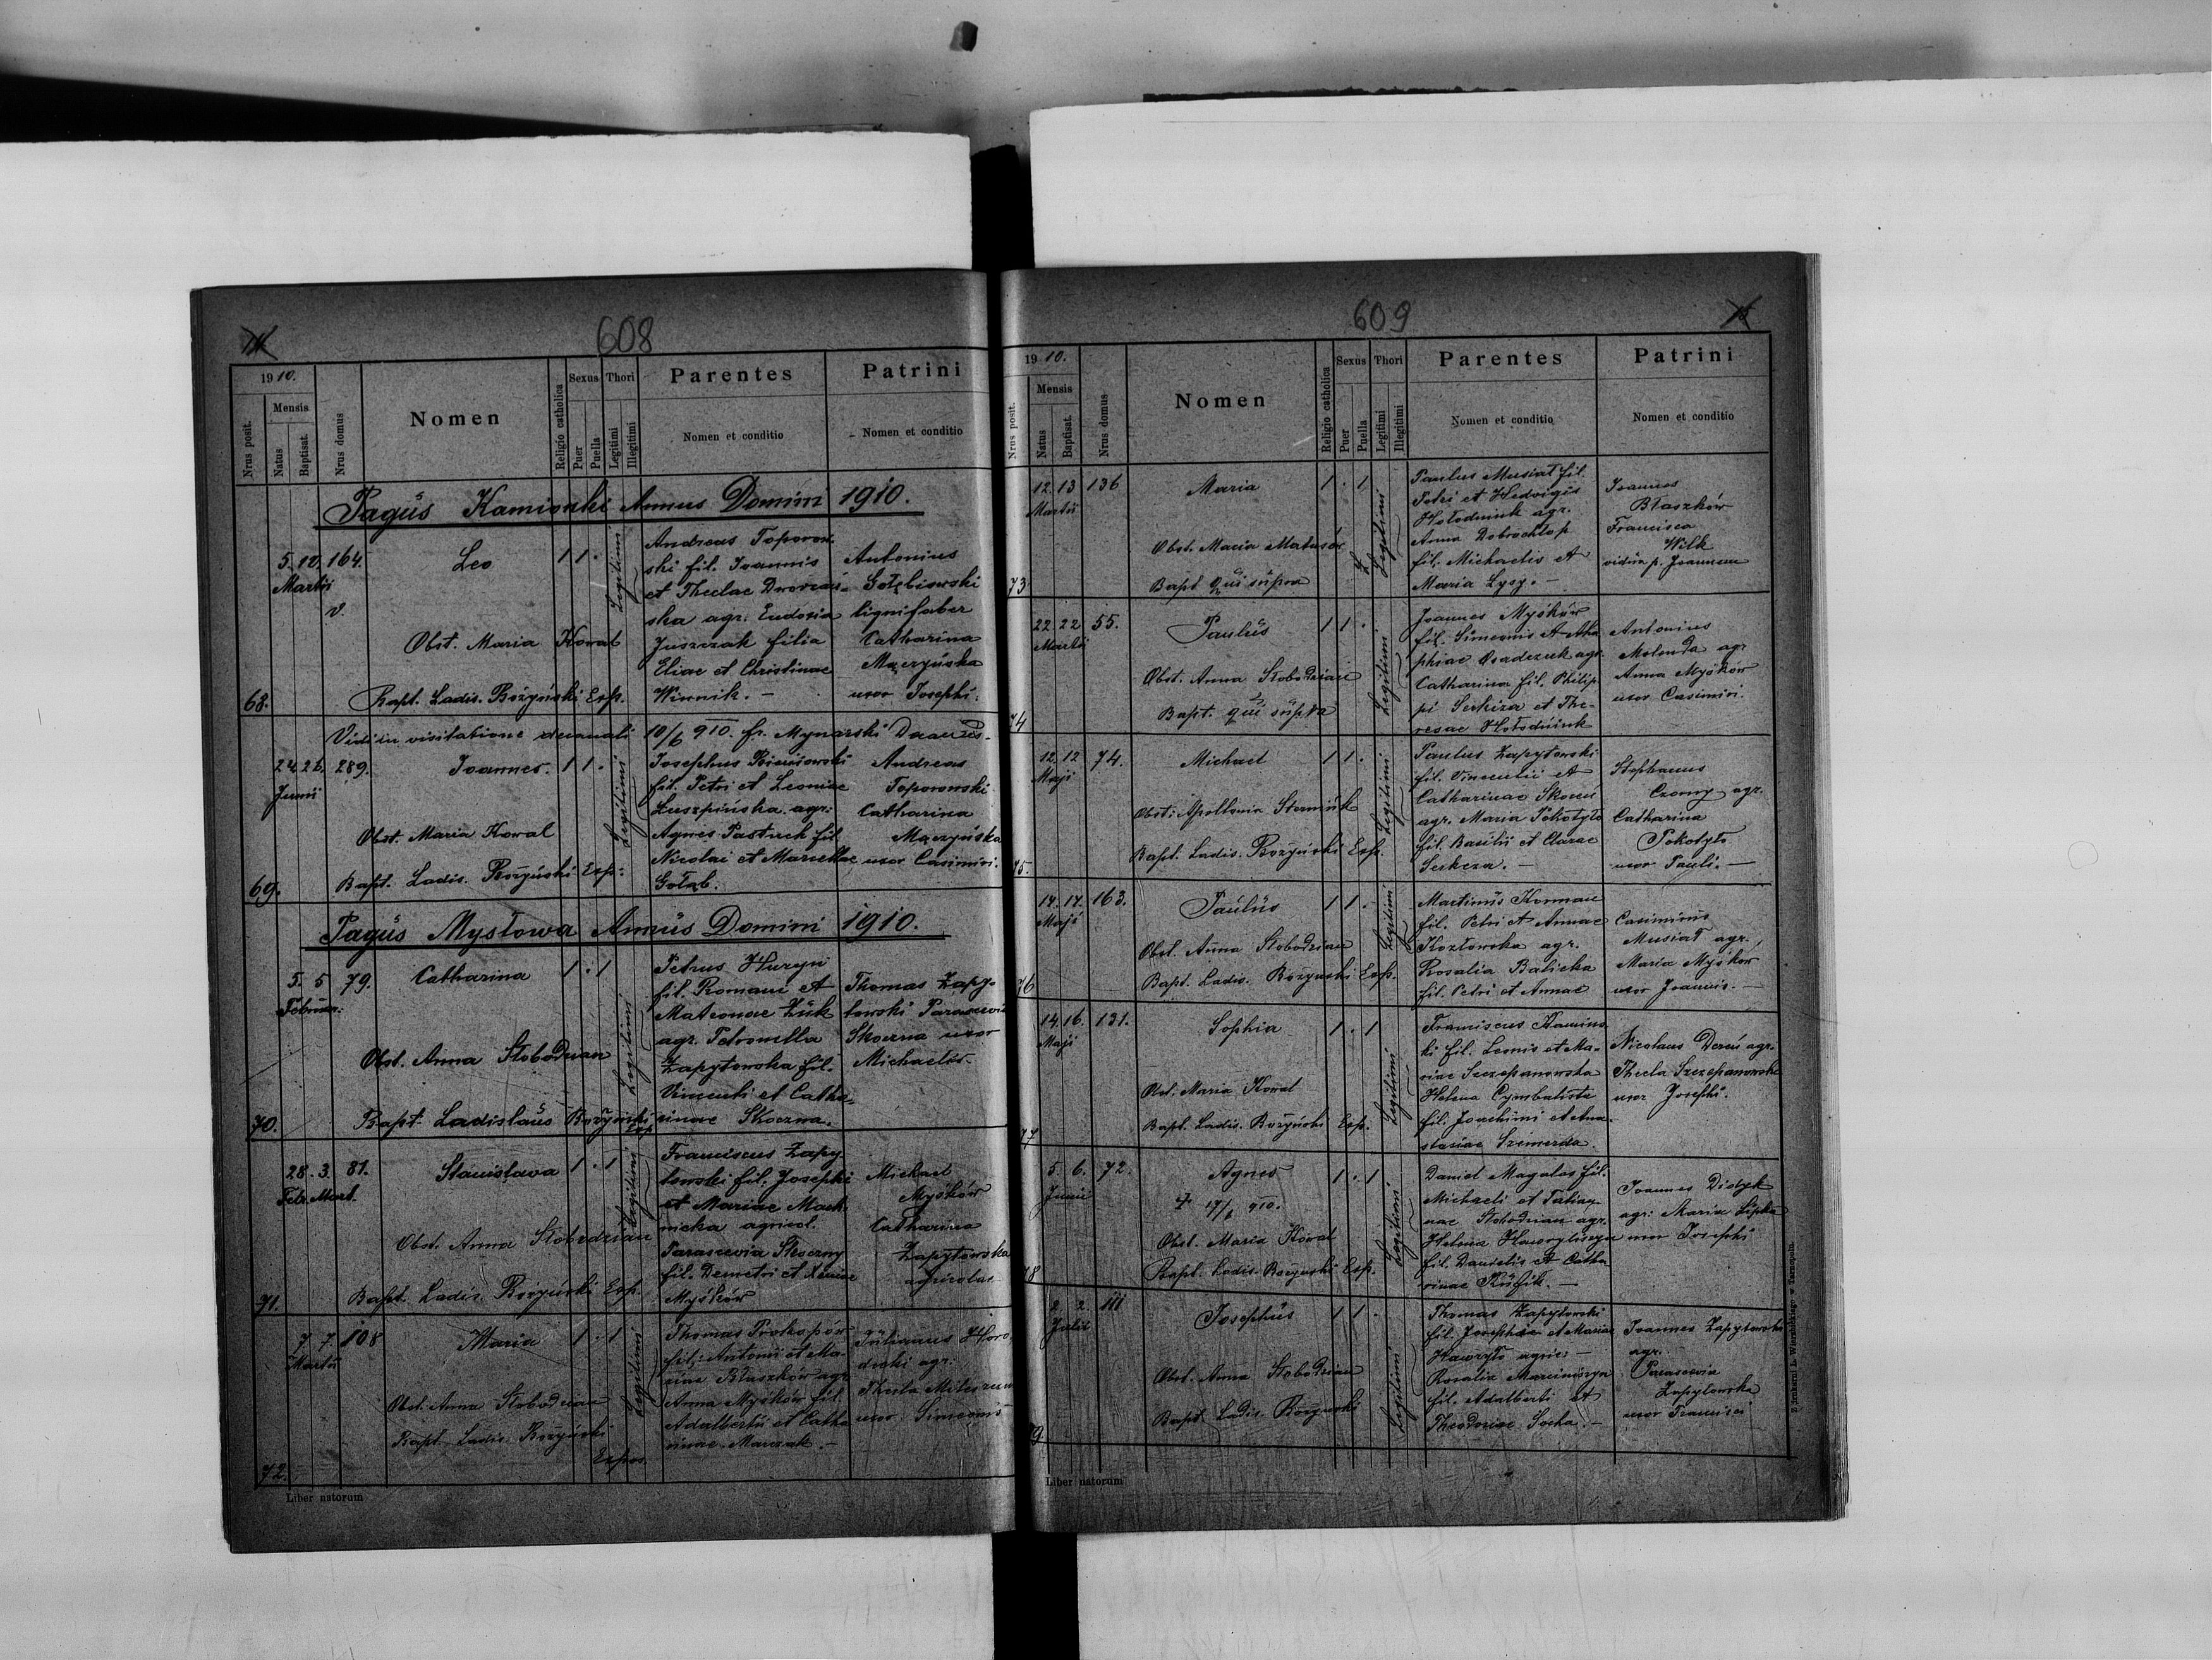 608
1910.
Nrus posit.
Mensis
Natus
Baptisat.
Nrus domus
Nomen
Religio catholica
Sexus
Puer
Puella
Thori
Legitimi
Illegitimi
Parentes
Nomen et conditio
Patrini
Nomen et conditio
Pagus Kamionki Annus Domini 1910.
68.
5. 12. 164.
Martii
Leo
1 1 .
Legitimi
Obst. Maria Kowal
Bapt. Ladis. Bożyński Exp.
Andreas Toporow-
ski fil. Joannis
et Theclae
ska agr. Eudoxia
Juszczak filia
Eliae et Christinae
Winnik. -
Antonius
Gołębiowski
lignifaber
Catharina
Mączyńska
uxor Josephi.
Vidi in visitatione decanali 10/6 910. fr. Mynarski
69.
24. 26. 289.
Junii
Joannes. 1 1 .
Legitimi
Obst. Maria Kowal
Bapt. Ladis. Bożyński Exp.
Josephus
fil. Petri et Leoniae
Łuszpińska agr.
Agnes Pastuch fil.
Nicolai et Mariellae
Gołąb.
Andreas
Toporowski
Catharina
Mączyńska
uxor Casimiri.
Pagus Mysłowa Annus Domini 1910.
70.
5. 5 79.
Februar.
Catharina 1 . 1
Legitimi
Obst. Anna Słobodzian
Bapt. Ladislaus Bożyński
Exp.
Petrus Huryn
fil. Romani et
Matronae Żuk
agr. Petronella
Zapytowska fil.
Vincenti et Catha-
rinae Skoczna.
Thomas Zapy-
towski Parascevia
Skoczna uxor
Michaelis.
71.
28. 3. 81.
Febr. Mart.
Stanislava 1 . 1
Legitimi
Obst. Anna Słobodzian
Bapt. Ladis. Bożyński Exp.
Franciscus Zapy
towski fil. Josephi
et Mariae Mach
nicka agricol.
Parascevia Skoczny
fil. Demetri et Xeniae
Myśków
Michael
Myśków
Catharina
Zapytowska
agricolae
72.
7. 7. 108
Martii
Maria 1 . 1
Legitimi
Obst. Anna Słobodzian
Bapt. Ladis. Bożyński
Expos.
Thomas Prokopów
fil. Antonii et Ma-
riae Błaszków agr.
Anna Myśków fil.
Adalberti et Catha
rinae Marczak. -
Julianus Horo
decki agr.
Thecla
uxor Simeonis
Liber natorum
609
1910.
Nrus posit.
Mensis
Natus
Baptisat.
Nrus domus
Nomen
Religio catholica
Sexus
Puer
Puella
Thori
Legitimi
Illegitimi
Parentes
Nomen et conditio
Patrini
Nomen et conditio
73
12. 13 136
Martii
Maria 1 . 1
Legitimi
Obst. Maria
Bapt qui supra
Paulus Musiał fil.
Petri et Hedvigis
Hołodniuk agr.
Anna Dobrochłop
fil. Michaelis et
Maria Łysy. -
Joannes
Błaszków
Francisca
Wilk
vidua p. Joannem
74
22. 22 55.
Martii
Paulus 1 1 .
Legitimi
Obst. Anna Słobodzian
Bapt. qui supra
Joannes Myśków
fil. Simeonis et Aga
phiae Osadczuk agr.
Catharina fil. Philip
pi Serkiza et The-
resae Hołodniuk
Antonius
Molenda agr
Anna Myśków
uxor Casimiri.
75.
12. 12 74.
Maji
Michael 1 1 .
Legitimi
Obst. Apollonia
Bapt. Ladis. Bożyński Exp.
Paulus Zapytowski
fil. Vincentii et
Catharinae
agr. Maria Pokotyło
fil. Basilii et Clarae
Serkeza. -
Stephanus
Czorny agr.
Catharina
Pokotyło
uxor Pauli. -
76
14. 17. 163.
Maji
Paulus 1 1 .
Legitimi
Obst. Anna Słobodzian
Bapt. Ladis. Bożyński Exp.
Martinus Korman
fil. Petri et Annae
Kozłowska agr.
Rosalia Balicka
fil. Petri et Annae
Casimirus
Musiał agr.
Maria Myśków
uxor Joannis. -
77
14. 16. 131.
Maji
Sophia 1 . 1
Legitimi
Obst. Maria Kowal
Bapt. Ladis. Bożyński Exp.
Franciscus Kamins
ki fil. Leonis et Ma-
riae Szczepanowska
Helena Cymbalista
fil. Joachimi et Ana-
stasiae Szemerda.
Nicolaus Dereń agr.
Thecla Szczepanowska
uxor Josephi.
78
5. 6. 72.
Junii
Agnes 1 . 1
17/6 910.
Legitimi
Obst. Maria Kowal
Bapt. Ladis. Bożyński Exp.
Daniel Magolas fil.
Michaeli et Tatian
nae Słobodzian agr.
Helena
fil. Danielis et Catha
rinae
Joannes Didyk
agr. Maria Lipka
uxor Josephi
79.
2. 2. 111
Julii
Josephus 1 1 .
Legitimi
Obst. Anna Słobodzian
Bapt. Ladis. Bożyński
Thomas Zapytowski
fil. Josephi et Mariae
Hawryło agric. -
Rosalia Marciniszyn
fil. Adalberti et
Theodosiae Socha. -
Joannes Zapytowski
agr.
Parascevia
Zapytowska
uxor Francisci
Liber natorum
Z drukarni L. Wierzbickiego w Tarnopolu.